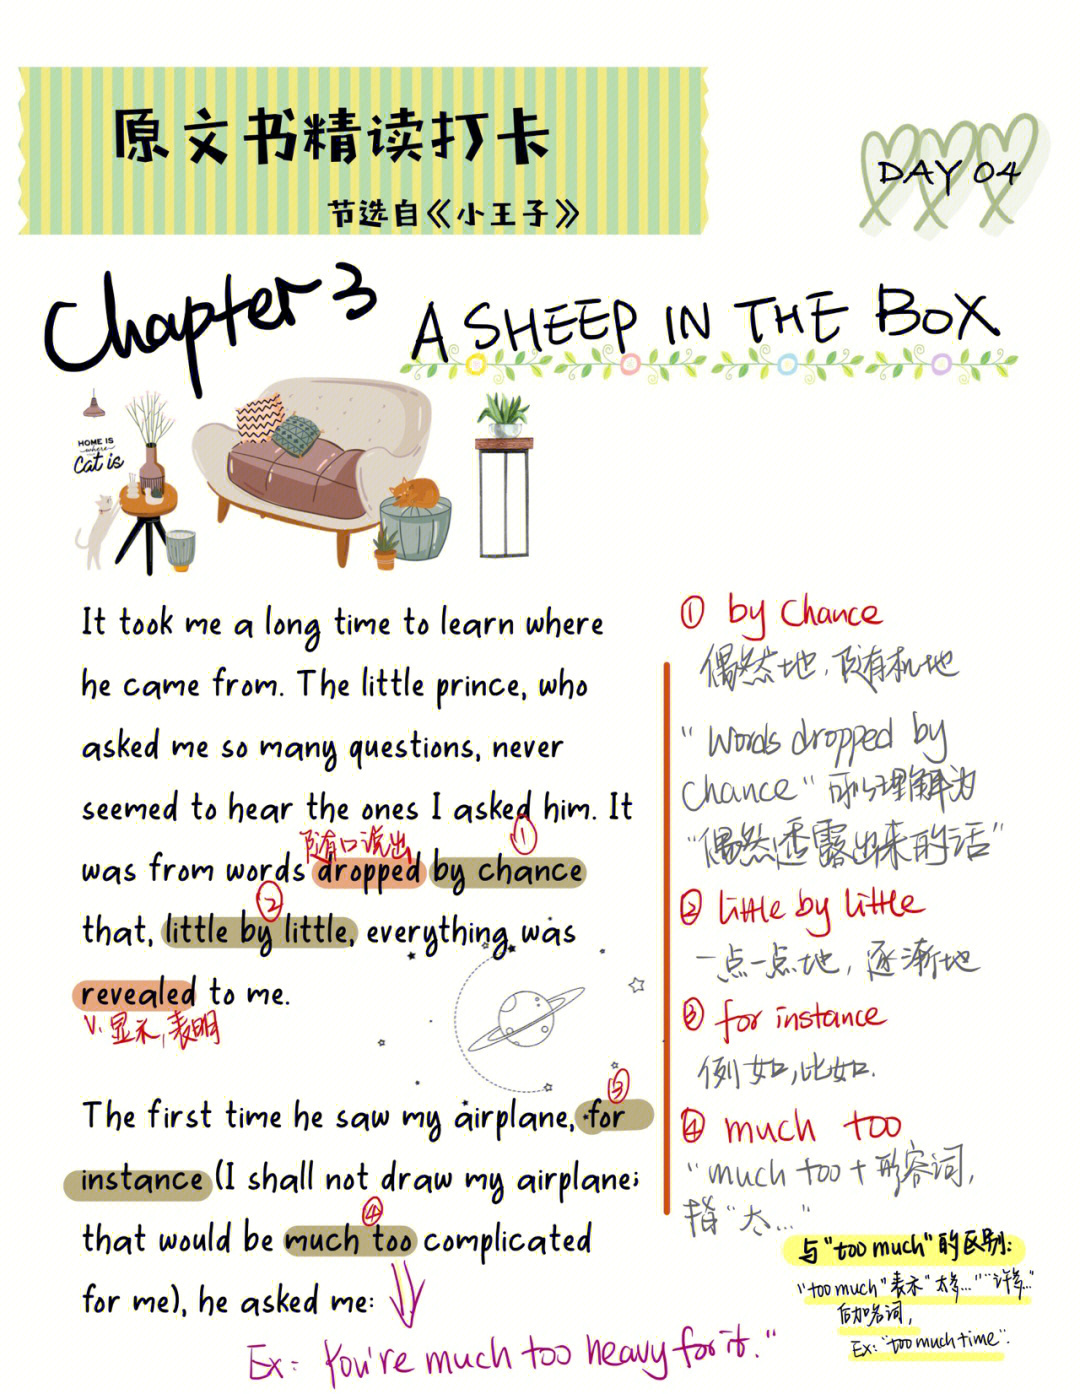 原文书精读打卡
节选自《小王子》
DAY 04
Chapter 3
A SHEEP IN THE BOX
HOME IS
where
Cat is
It took me a long time to learn where
he came from. The little prince, who
asked me so many questions, never
seemed to hear the ones I asked him. It
随口说出
①
was from words dropped by chance
②
that, little by little, everything was
revealed to me.
V. 显示,表明
③
The first time he saw my airplane, for
instance (I shall not draw my airplane;
④
that would be much too complicated
for me), he asked me:
Ex: You're much too heavy for it."
① by chance
偶然地,随机地
"Words dropped by
chance" 可以理解为
"偶然透露出来的话"
② little by little
一点一点地,逐渐地
③ for instance
例如,比如.
④ much too
"much too + 形容词,
指"太..."
与"too much"的区别:
"too much"表示"太多...""许多..."
后加名词,
Ex: "too much time".